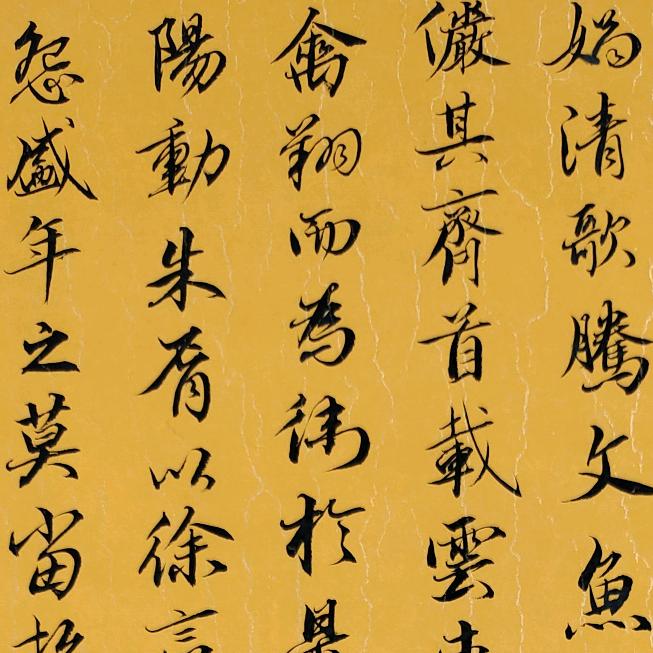 媧清歌騰文魚
儼其齊首載雲
禽翔而為衛於是
陽動朱脣以徐言
怨盛年之莫當